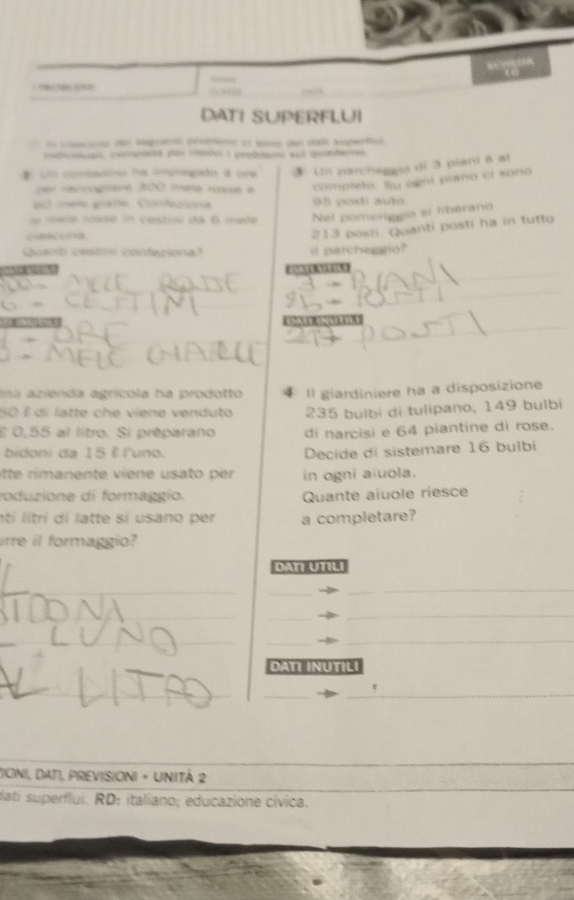 SCHEDA
10
PROBLEMI
DATI SUPERFLUI
In ciascuno dei seguenti problemi ci sono dei dati superflui.
Un contadino ha impiegato 4 ore
per raccogliere 300 mele rosse e
60 mele gialle. Confeziona
le mele rosse in cestini da 6 mele
ciascuna.
Quanti cestini confeziona?
MELE ROSSE
6 - CESTINI
ORE
MELE GIALLE
3 Un parcheggio di 3 piani è al
completo. Su ogni piano ci sono
95 posti auto.
Nel pomeriggio si liberano
213 posti. Quanti posti ha in tutto
il parcheggio?
DATI UTILI
3 - PIANI
95 - POSTI
DATI INUTILI
POSTI
una azienda agricola ha prodotto
50 ℓ di latte che viene venduto
€ 0,55 al litro. Si preparano
bidoni da 15 ℓ l'uno.
tte rimanente viene usato per
roduzione di formaggio.
nti litri di latte si usano per
urre il formaggio?
L
L'UNO
AL LITRO
4 Il giardiniere ha a disposizione
235 bulbi di tulipano, 149 bulbi
di narcisi e 64 piantine di rose.
Decide di sistemare 16 bulbi
in ogni aiuola.
Quante aiuole riesce
a completare?
DATI UTILI
DATI INUTILI
ZIONI, DATI, PREVISIONI • UNITÀ 2
dati superflui. RD: italiano; educazione civica.